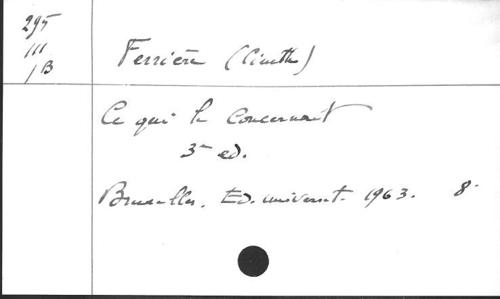 295
III
/B
Ferrière (Cinette)
Ce qui la concernant
3me ed.
Bruxelles. Ed. universit. 1963. 8°